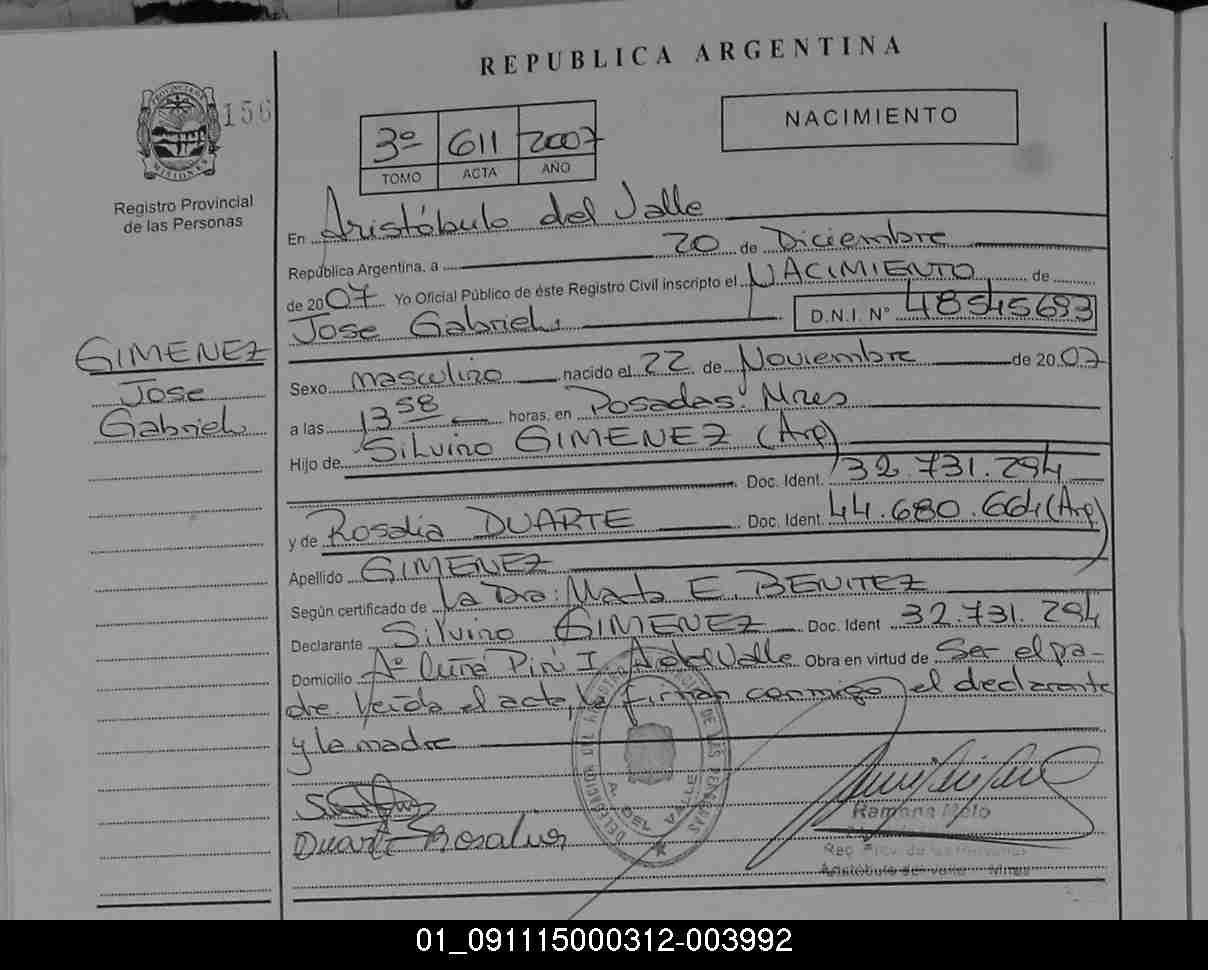 REPUBLICA ARGENTINA
PROVINCIA
MISIONES
156
Registro Provincial
de las Personas
3º 611 2007
TOMO ACTA AÑO
NACIMIENTO
En Aristóbulo del Valle
República Argentina, a 20 de Diciembre
de 2007 Yo Oficial Público de éste Registro Civil inscripto el NACIMIENTO de
Jose Gabriel D.N.I. Nº 48545693
GIMENEZ
Jose
Gabriel
Sexo masculino nacido el 22 de Noviembre de 2007
a las 13 58 horas, en Posadas. Mnes
Hijo de Silvino GIMENEZ (Arg)
Doc. Ident. 32.731.294
y de Rosalia DUARTE Doc. Ident. 44.680.664 (Arg)
Apellido GIMENEZ
Según certificado de La Dra: Marta E. BENITEZ
Declarante Silvino GIMENEZ Doc. Ident 32.731.294
Domicilio Aº Cuña Pirú I A. del Valle Obra en virtud de Ser el pa-
dre. Leída el acta, la firman conmigo el declarante
y la madre
DELEGACION DEL REGISTRO DE LAS PERSONAS
A. DEL VALLE
Duarte Rosalia
Ramona Melo
Reg. Prov. de las Personas
Aristóbulo del Valle - Mnes
01_091115000312-003992